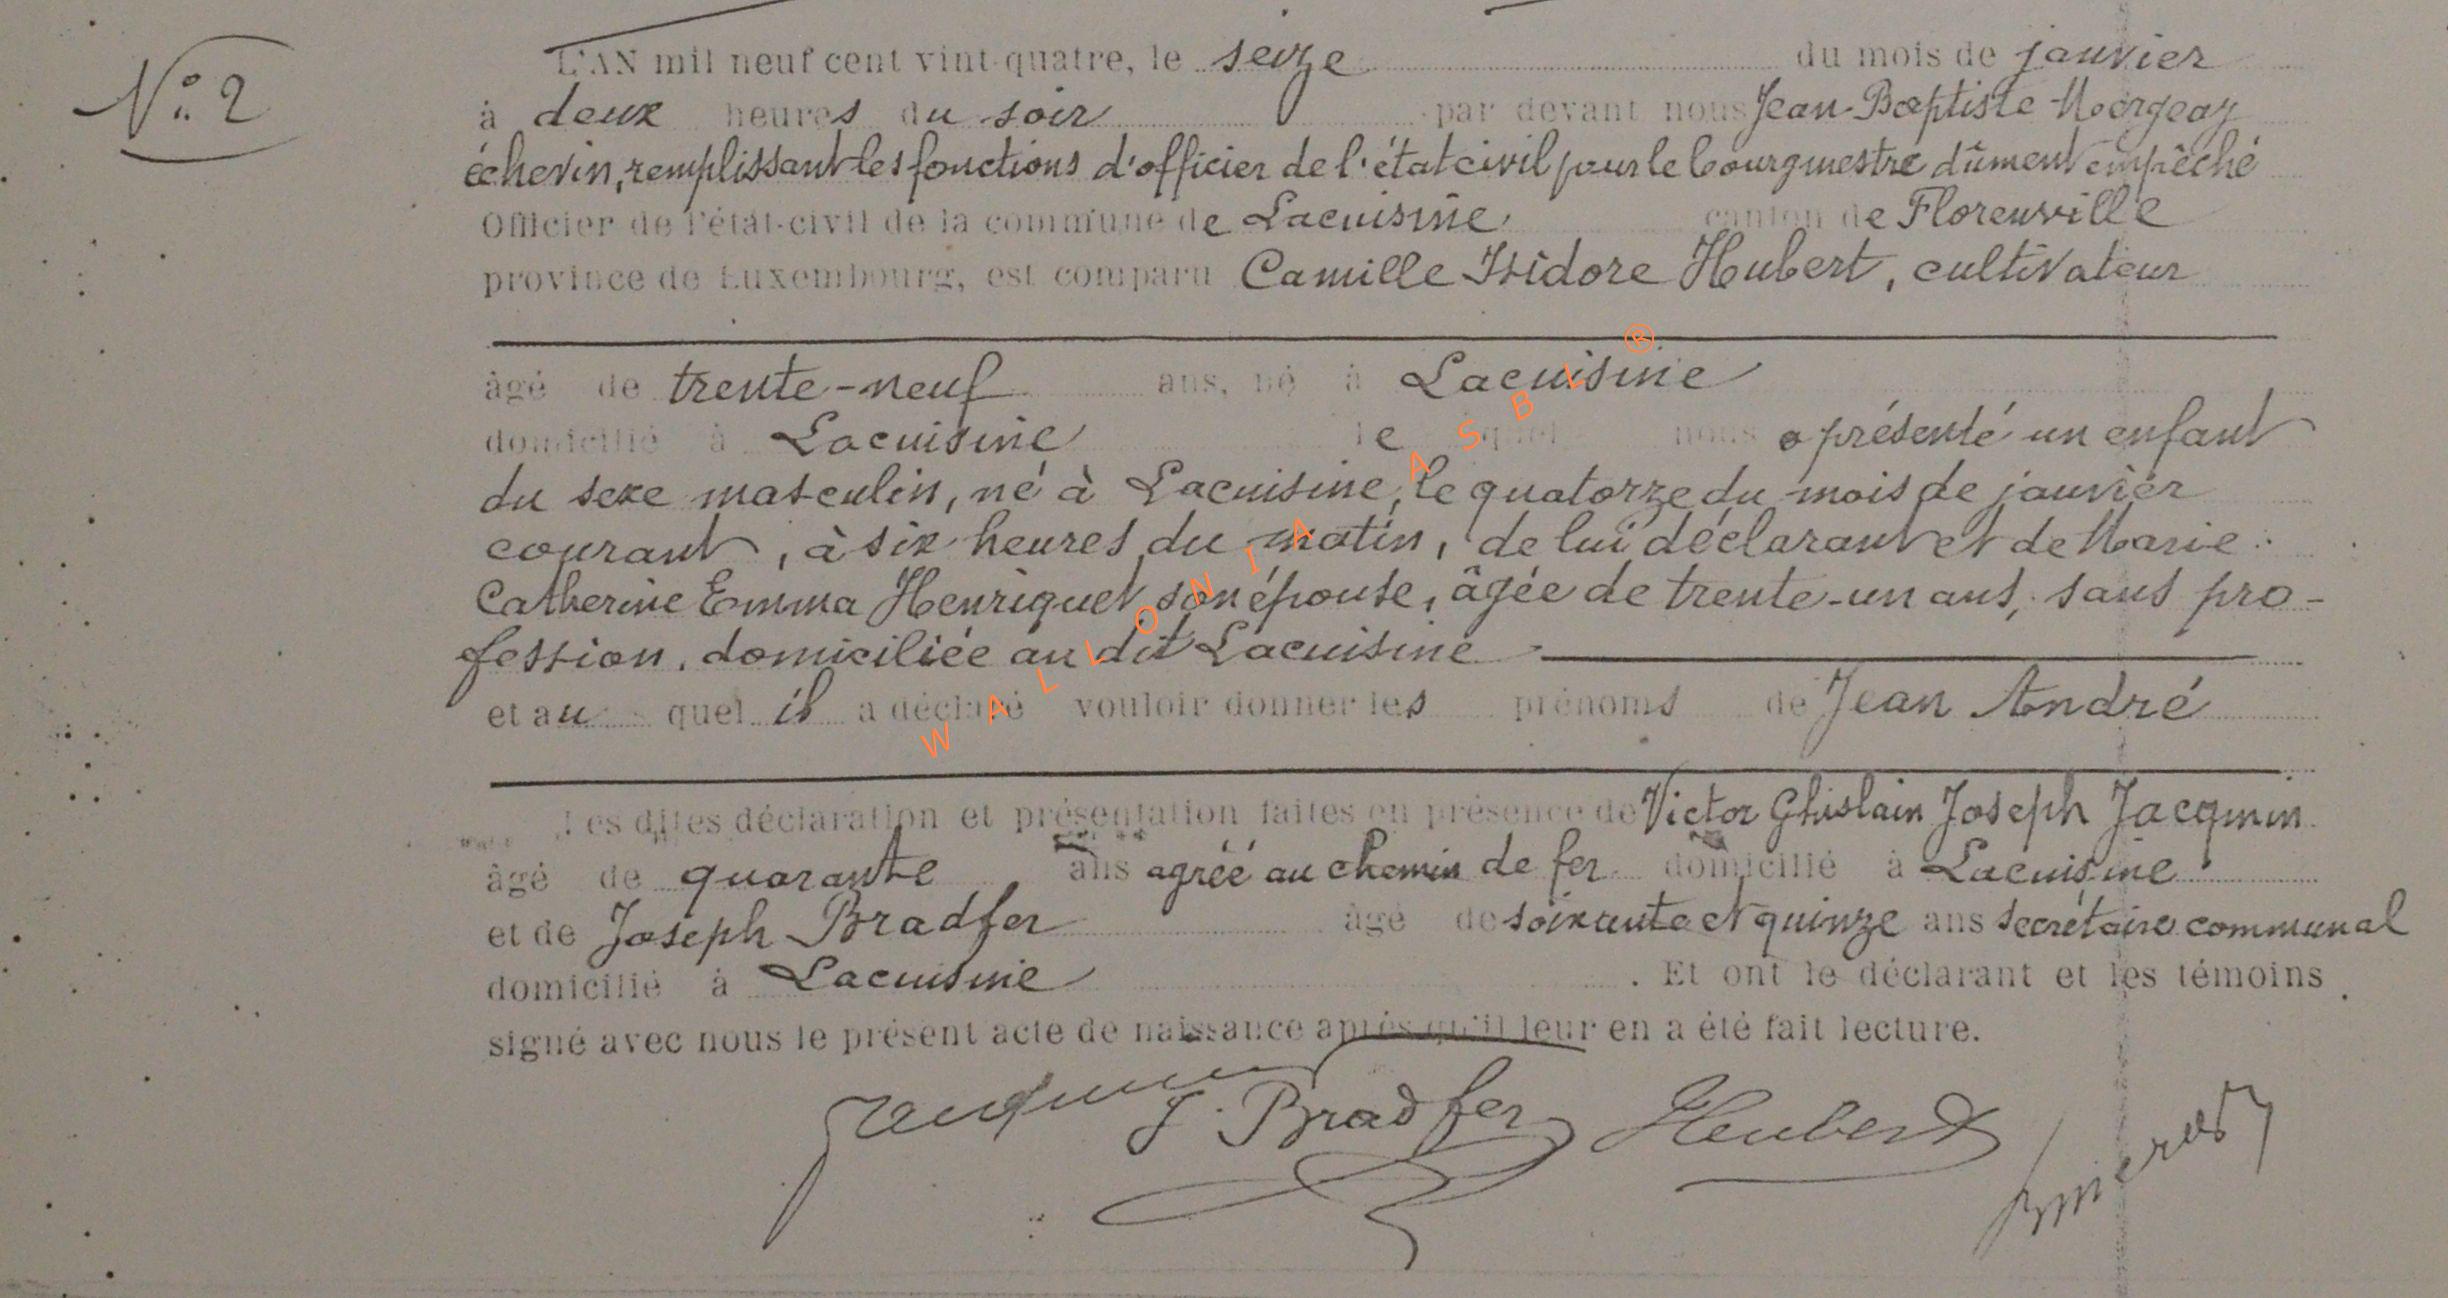 N° 2
L'AN mil neuf cent vint-quatre, le seize du mois de janvier
à deux heures du soir par devant nous Jean-Baptiste
échevin, remplissant les fonctions d'officier de l'état civil pour le bourgmestre dûment empêché
Officier de l'état-civil de la commune de Lacuisine canton de Florenville
province de Luxembourg, est comparu Camille Isidore Hubert, cultivateur
âgé de trente-neuf ans, né à Lacuisine
domicilié à Lacuisine lequel nous a présenté un enfant
du sexe masculin, né à Lacuisine, le quatorze du mois de janvier
courant, à six heures du matin, de lui déclarant et de Marie
Catherine Emma Henriquet son épouse, âgée de trente-un ans, sans pro-
fession, domiciliée au dit Lacuisine
et au quel il a déclaré vouloir donner les prénoms de Jean André
Les dites déclaration et présentation faites en présence de Victor Ghislain Joseph Jacqmin
âgé de quarante ans agréé au chemin de fer domicilié à Lacuisine
et de Joseph Bradfer âgé de soixante et quinze ans secrétaire communal
domicilié à Lacuisine. Et ont le déclarant et les témoins
signé avec nous le présent acte de naissance après qu'il leur en a été fait lecture.
Jacqmin J. Bradfer Hubert
WALLONIA ASBL ®